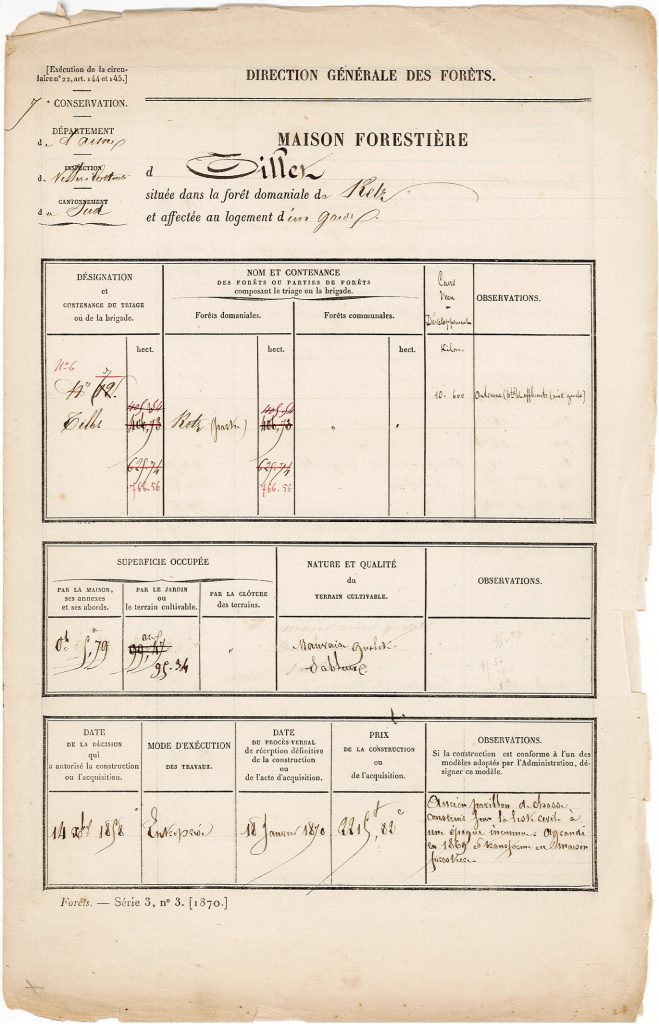 [Exécution de la circu-
laire n° 22, art. 144 et 145.]
7e CONSERVATION.
DÉPARTEMENT
de l'aisne
INSPECTION
d
CANTONNEMENT
du Sud
DIRECTION GÉNÉRALE DES FORÊTS.
MAISON FORESTIÈRE
d
située dans la forêt domaniale de Retz
et affectée au logement d'un garde
DÉSIGNATION
et
CONTENANCE DU TRIAGE
où de la brigade.
NOM ET CONTENANCE
DES FORÊTS OU PARTIES DE FORÊTS
composant le triage ou la brigade.
Forêts domaniales.
Forêts communales.
Cours
d'eau
Développement
OBSERVATIONS.
hect.
hect.
hect.
Kilom.
N° 6
N° 12.
405.54
406,73
Retz (partie)
405.54
406,73
"
"
10. 600
Automne
625.74
625.74
766.56
766.56
SUPERFICIE OCCUPÉE
NATURE ET QUALITÉ
du
TERRAIN CULTIVABLE.
OBSERVATIONS.
PAR LA MAISON,
ses annexes
et ses abords.
PAR LE JARDIN
ou
le terrain cultivable.
PAR LA CLÔTURE
des terrains.
0h 5a,79
99,47
95.34
"
Mauvaise qualité
Sableux.
95.34
DATE
DE LA DÉCISION
qui
a autorisé la construction
ou l'acquisition.
MODE D'EXÉCUTION
DES TRAVAUX.
DATE
DU PROCÈS-VERBAL
de réception définitive
de la construction
ou
de l'acte d'acquisition.
PRIX
DE LA CONSTRUCTION
ou
de l'acquisition.
OBSERVATIONS.
Si la construction est conforme à l'un des
modèles adoptés par l'Administration, dé-
signer ce modèle.
14 xbre 1858
Entreprise
18 Janvier 1870
2215f,82c
Ancien pavillon de chasse
construit par la liste civile à
une époque inconnue. Agrandi
en 1869 et transformé en maison
forestière.
Forêts. — Série 3, n° 3. [1870.]